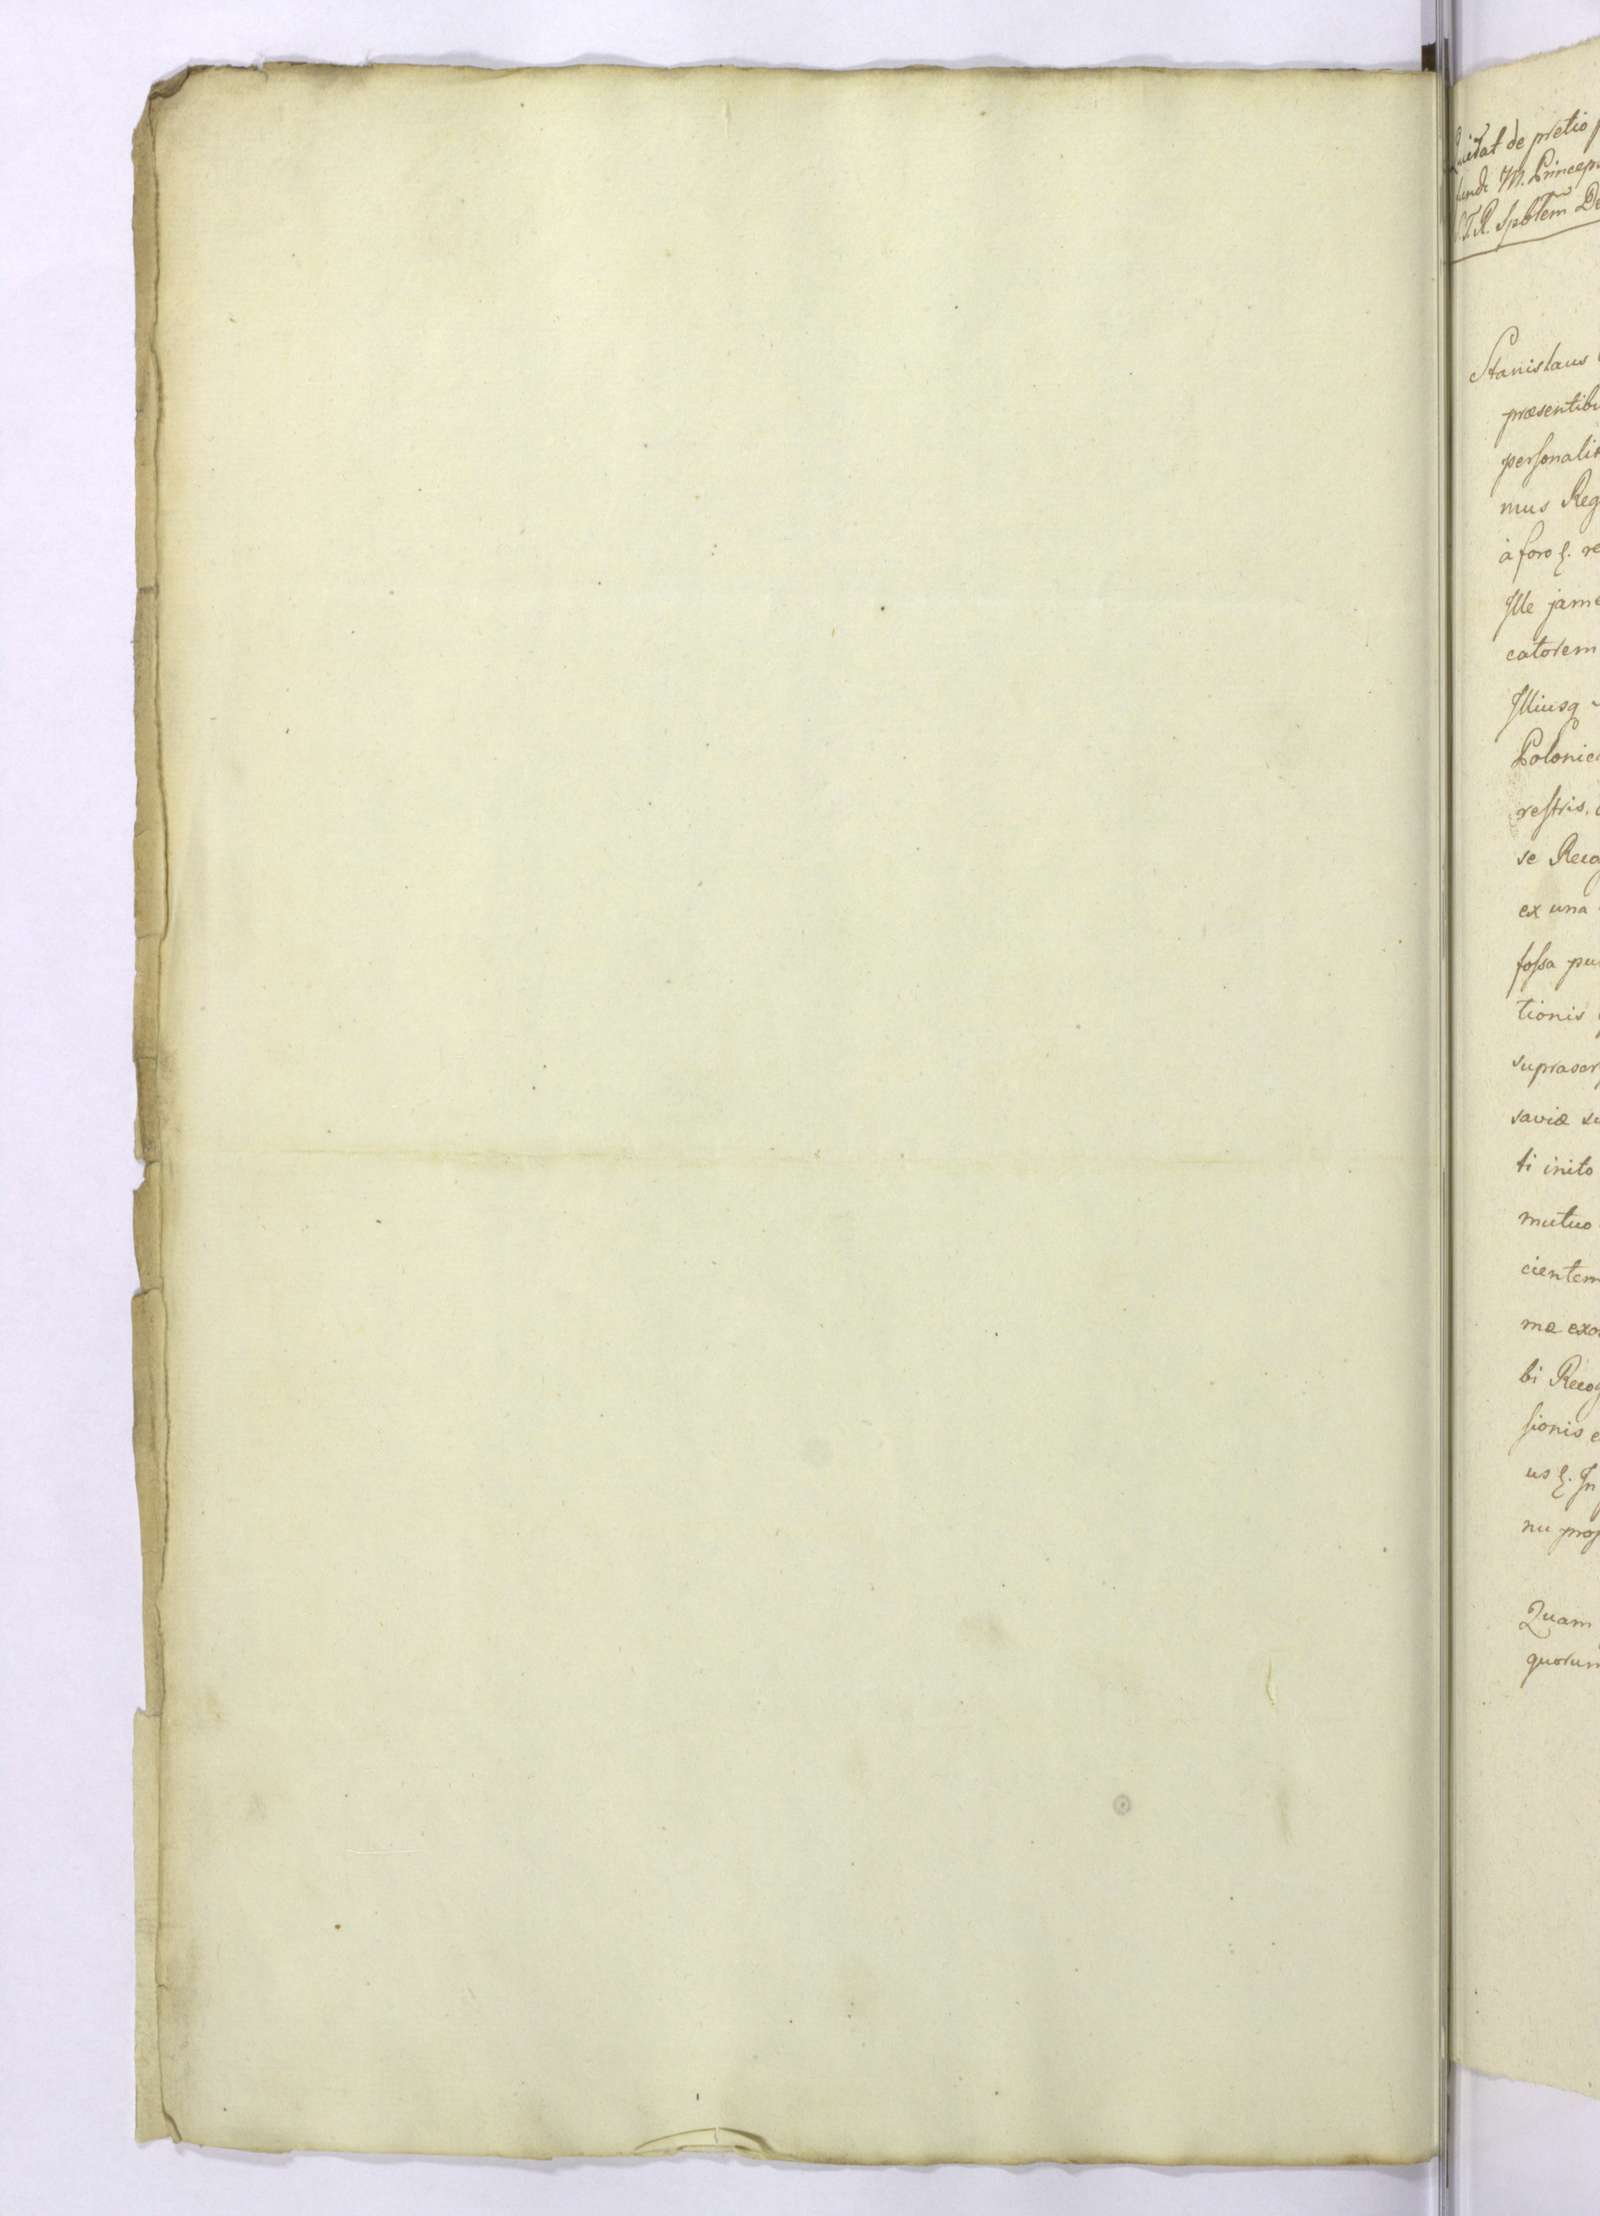 de pretio
M. Princeps
S.T.R. Spbtem De
Stanislaus
præsentibu
personalit
mus Reg
à foro
Ille jame
catorem
Illiusq
Polonica
restris.
se Recog
ex una
fossa pu
tionis
suprascr
saviæ su
ti inito
mutuo
cientem
mæ exo
bi Recog
sionis e
us In
nu prop
Quam
quorum